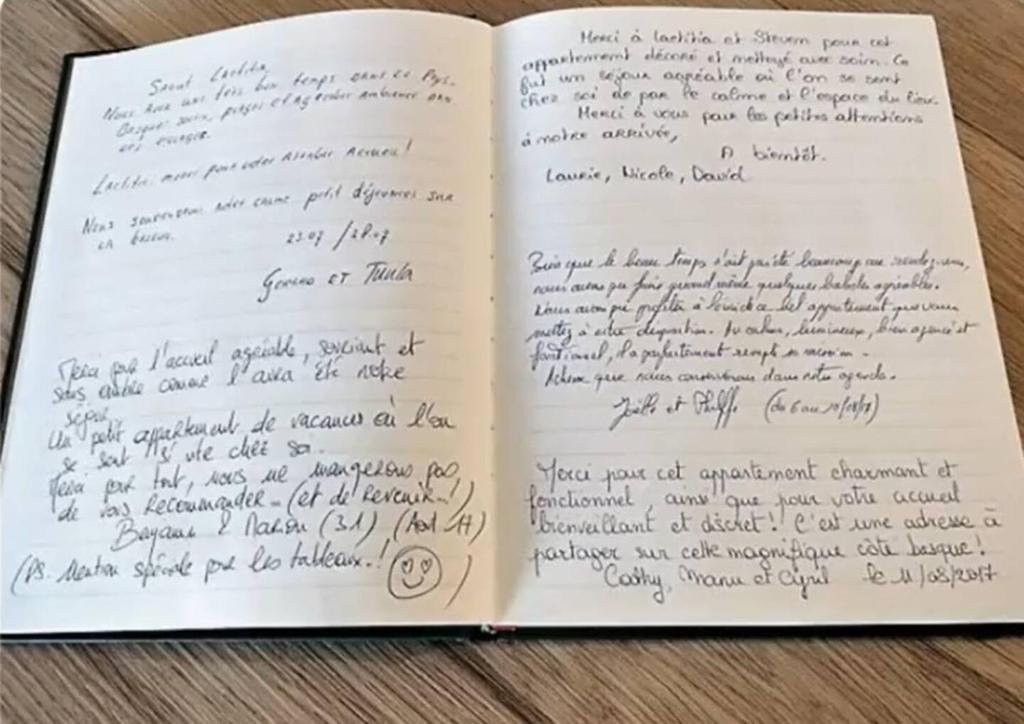 Salut Laetitia,
Nous avons une très bon temps dans le Pays-
Basque:
Laetitia, merci pour votre Accueil!
Nous petit déjeuners sur
23.07 / 28.07
ET
Merci pour l'accueil agréable, souriant et
sans comme l'aura été notre
séjour.
Un petit appartement de vacances où l'on
se sent si vite chez soi.
Merci pour tout, nous ne manquerons pas
de vous Recommander... (et de Revenir...!)
& Marion (31) (Août 17)
(PS. Mention spéciale pour les tableaux..!)
Merci à Laetitia et Steven pour cet
appartement décoré et nettoyé avec soin. Ce
fut un séjour agréable où l'on se sent
chez soi de par le calme et l'espace du lieu.
Merci à vous pour les petites attentions
à notre arrivée,
A bientôt.
Laurie, Nicole, David
Bien que le beau temps n'ait pas été beaucoup au rendez-vous,
nous avons pu faire quand même quelques balades agréables.
Nous avons pu profiter à loisir de ce bel appartement que vous
mettez à notre disposition. Au calme, lumineux, bien agencé et
fonctionnel, il a parfaitement rempli sa mission.
Adresse que nous conserverons dans notre agenda.
Joëlle et (du 6 au
Merci pour cet appartement charmant et
fonctionnel, ainsi que pour votre accueil
bienveillant et discret! C'est une adresse à
partager sur cette magnifique côte basque!
Cathy, Manu et Cyril le 11/08/2017